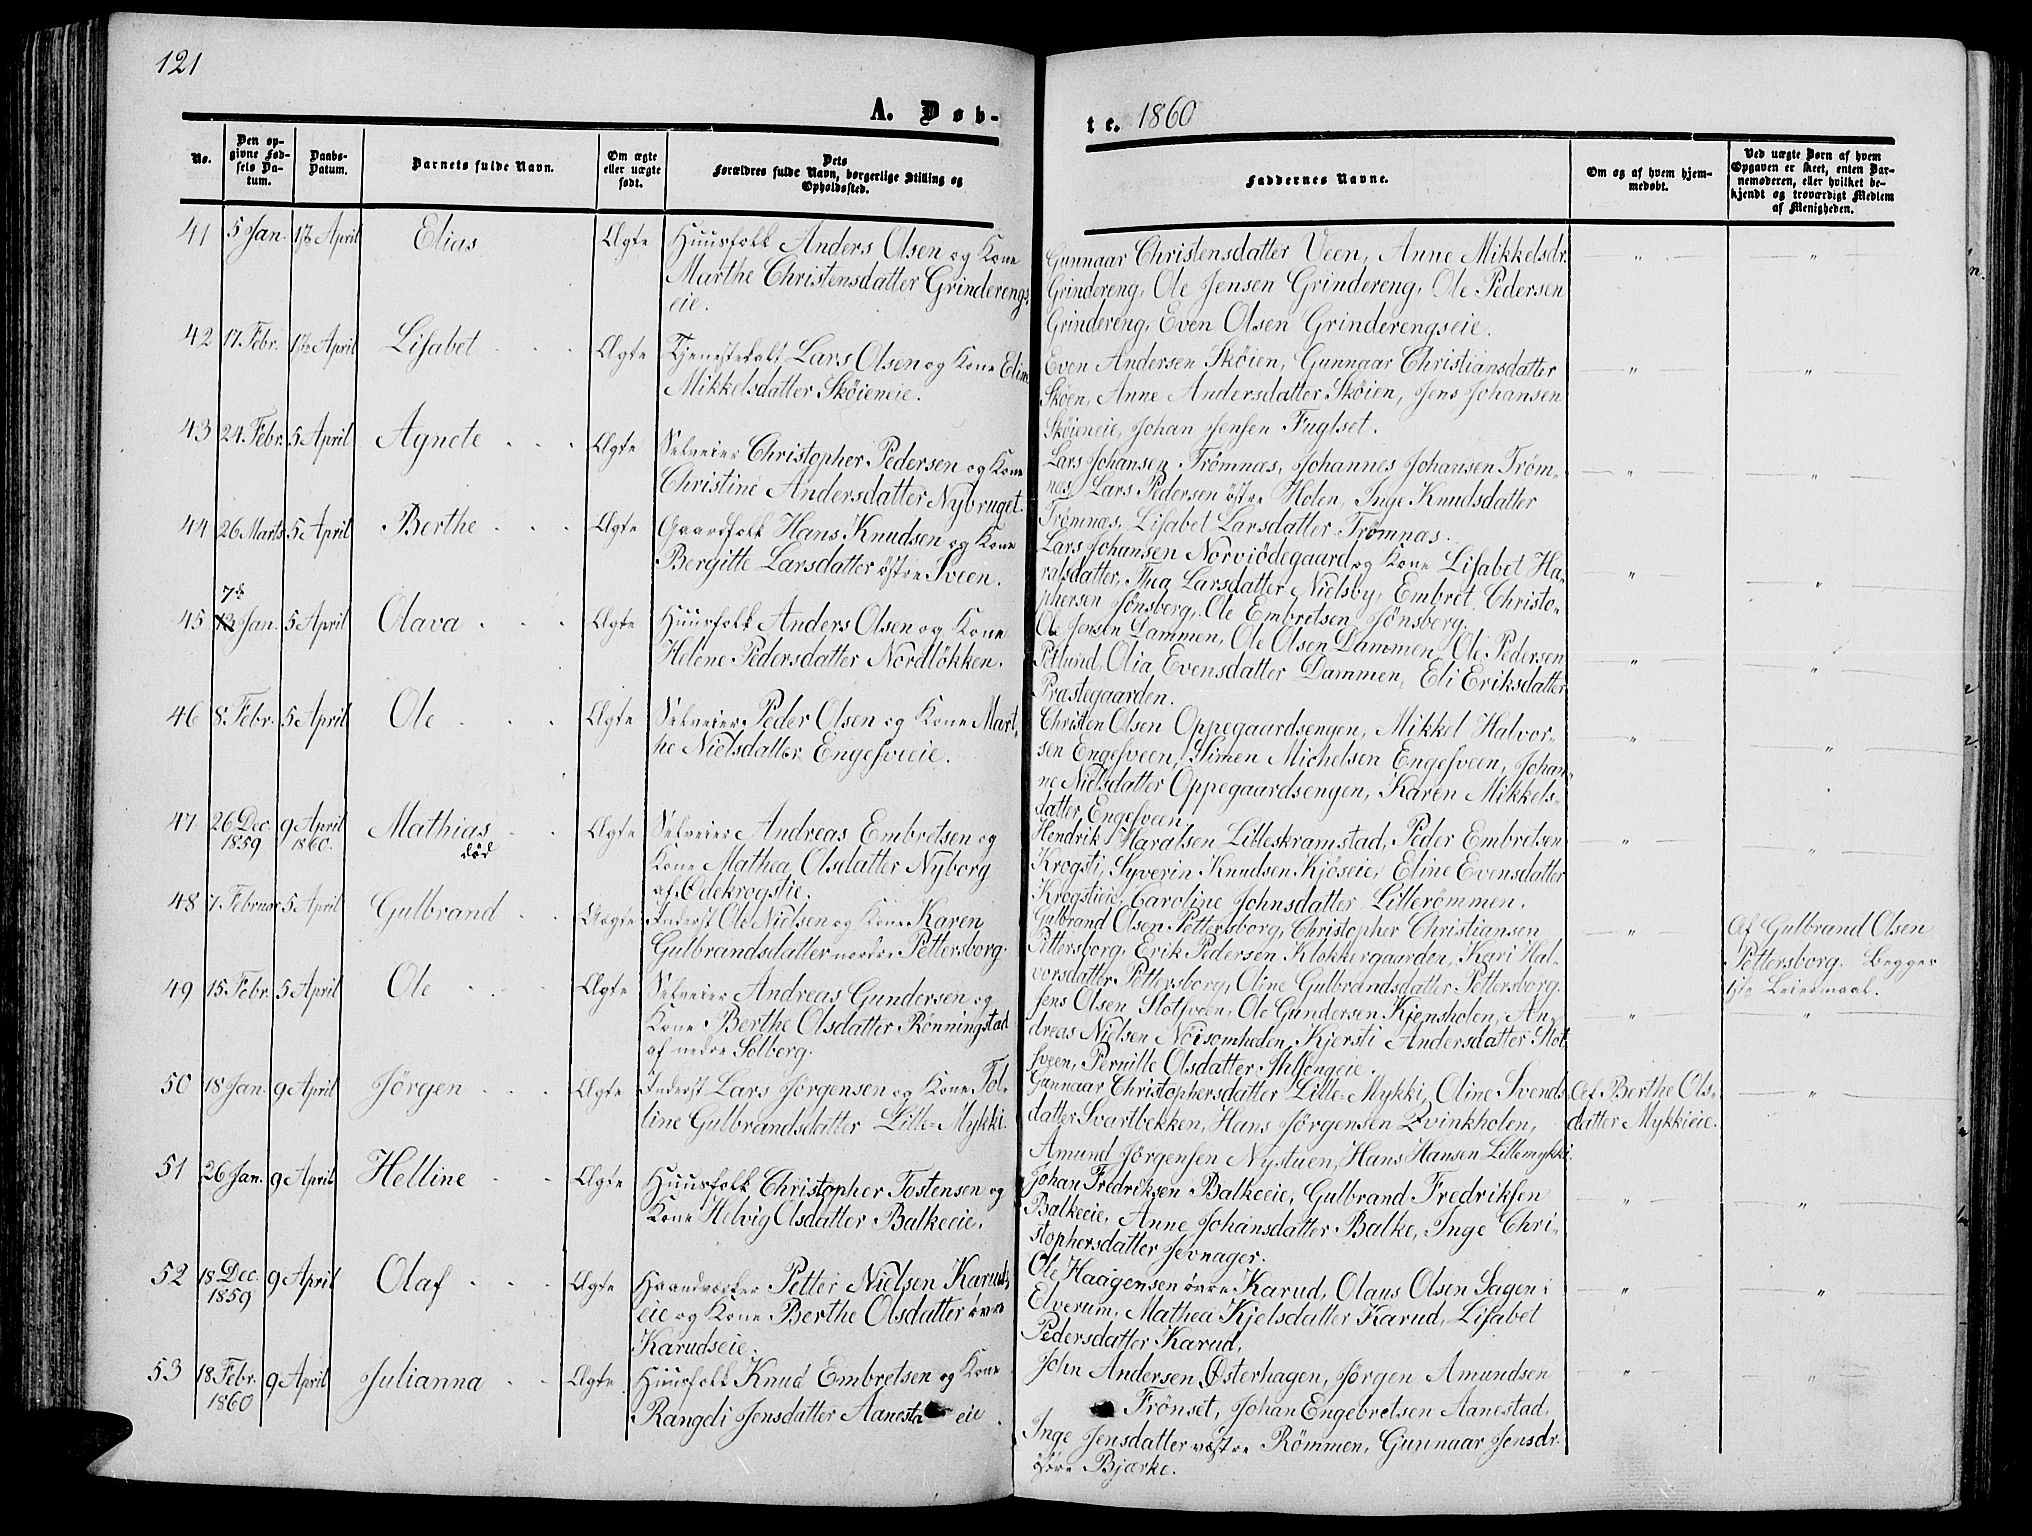 121
A. Døb-
te. 1860
No.
Den op-
givne Fød-
sels Da-
tum.
Daabs-
Datum.
Barnets fulde Navn.
Om ægte
eller uægte
født.
Dets
Forældres fulde Navn, borgerlige Stilling og
Opholdssted.
Faddernes Navne.
Om og af hvem hjem-
medøbt.
Ved uægte Børn af hvem
Opgaven er skeet, enten Bar-
nemoderen, eller hvilket be-
kjendt og troværdigt Medlem
af Menigheden.
41 5 Jan. April Elias Ægte Huusfolk Anders Olsen og Kone
Marthe Christensdatter Grinderengs
eie.
Gunnaar Christensdatter Veen, Anne Mikkelsdr.
Grindereng, Ole Jensen Grindereng, Ole Pedersen
Grindereng, Even Olsen Grinderengseie.
42 17 Febr. April Lisabet Ægte Tjenestekall Lars Olsen og Kone Eline
Mikkelsdatter Skøieneie.
Even Andersen Skøien, Gunnaar Christiansdatter
Skøen, Anne Andersdatter Skøien, Jens Johansen
Skøieneie, Johan Jensen Fuglset.
43 24 Febr. 5 April Agnete Ægte Selveier Christopher Pedersen og Kone
Christine Andersdatter Nybruget.
Lars Johansen Trømnæs, Johannes Johansen Trøm-
næs, Lars Pedersen østre Holen, Inge Knudsdatter
Trømnæs, Lisabet Larsdatter Trømnæs.
44 26 Marts 5 April Berthe Ægte Gaardfolk Hans Knudsen og Kone
Bergitte Larsdatter østre Sveen.
Lars Johansen Norviødegaard og Kone Lisabet Ha-
ralsdatter, Thea Larsdatter Nielsby, Embret Christo-
phersen Jønsberg, Ole Embretsen Jønsberg.
7de
45 13 Jan. 5 April Olava Ægte Huusfolk Anders Olsen og Kone
Helene Pedersdatter Nordløkken.
Ole Jensen Dammen, Ole Olsen Dammen, Ole Pedersen
Pettlund, Olia Evensdatter Dammen, Eli Eriksdatter
Præstegaarden.
46 8. Febr. 5 April Ole Ægte Selveier Peder Olsen og Kone Mart-
he Nielsdatter Engesveeie.
Christen Olsen Oppegaardsengen, Mikkel Halvor-
sen Engesveen, Simen Michelsen Engesveen, Johan-
ne Nielsdatter Oppegaardsengen, Karen Mikkels-
datter Engesveen.
47 26 Dec. 1859 9 April 1860. Mathias død Ægte Selveier Andreas Embretsen og
Kone Mathea Olsdatter Nyborg
af Ødekrogstie.
Hendrik Haralsen Lilleskramstad, Peder Embretsen
Krogsti, Syverin Knudsen Kjøseie, Eline Evensdatter
Krogstieie, Caroline Johnsdatter Lillerømmen.
48 7 Februar 5 April Gulbrand Uægte Inderst Ole Nielsen og Kone Karen
Gulbrandsdatter nordre Pettersborg.
Gulbrand Olsen Pettersborg, Christopher Christiansen
Pettersborg, Erik Pedersen Klokkergaarden, Kari Hal-
vorsdatter Pettersborg, Oline Gulbrandsdatter Pettersborg.
Af Gulbrand Olsen
Pettersborg. Begges
1ste Leiermaal.
49 15. Febr. 5 April Ole Ægte Selveier Andreas Gundersen og
Kone Berthe Olsdatter Rønningstad
af nedre Solberg.
Jens Olsen Slotsveen, Ole Gundersen Kjensholen, An-
dreas Nielsen Nøisomheden, Kjersti Andersdatter Slot-
sveen, Pernille Olsdatter Ihlsengeie.
50 18 Jan. 9 April Jørgen Ægte Inderst Lars Jørgensen og Kone Tol-
line Gulbrandsdatter Lille-Mykki.
Gunnaar Christophersdatter Lille-Mykki, Oline Svends-
datter Svartbekken, Hans Jørgensen Kvinkholen,
Amund Jørgensen Nystuen, Hans Hansen Lillemykki.
Af Berthe Ols-
datter Mykkieie.
51 26 Jan. 9 April Helline Ægte Huusfolk Christopher Tostensen og
Kone Helvig Olsdatter Balkeeie.
Johan Fredriksen Balkeeie, Gulbrand Fredriksen
Balkeeie, Anne Johansdatter Balke, Inge Chri-
stophersdatter Jevnager.
52 18 Dec. 1859 9 April Olaf Ægte Haandværker Petter Nielsen Karuds-
eie og Kone Berthe Olsdatter øvre
Karudseie.
Ole Haagensen øvre Karud, Olaus Olsen Sagen i
Elverum, Mathea Kjelsdatter Karud, Lisabet
Pedersdatter Karud.
53 18 Febr. 1860 9 April Julianna Ægte Huusfolk Knud Embretsen og Kone
Rangdi Jensdatter Aanesta eie.
John Andersen Østerhagen, Jørgen Amundsen
Frønset, Johan Engebretsen Aanestad,
Inge Jensdatter vestre Rømmen, Gunnaar Jensdr.
Bjærke.